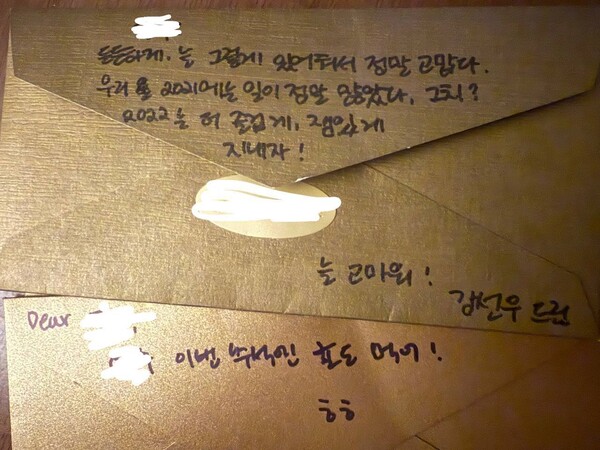 든든하게. 늘 그렇게 있어줘서 정말 고맙다.
우리 2021에는 일이 정말 많았다, 그치?
2022는 더 즐겁게, 재밌게
지내자!
늘 고마워!
김선우 드림
Dear
이번 먹어!
ㅎㅎ